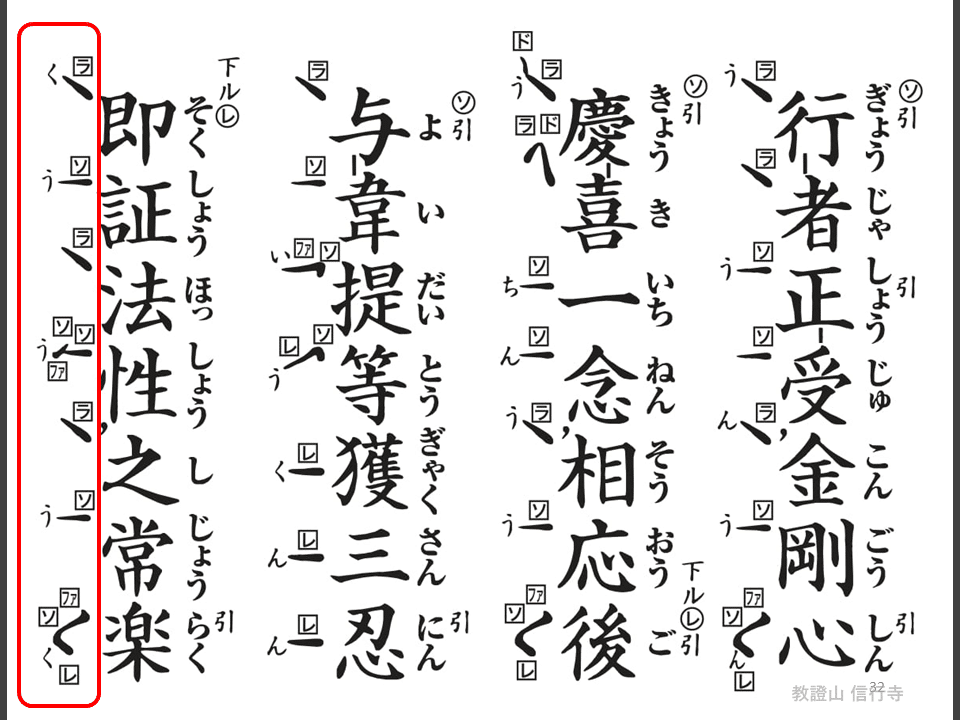 行者正受金剛心
ぎょう じゃ しょう じゅ こん ごう しん
ソ引 引 引
う ラ
ラ
う ソ
ソ
ん ラ
う ソ
ファ ソ ん レ
慶喜一念相応後
きょう き いち ねん そう おう ご
ソ引 下ルレ引
ド う ラ
ラ ド
ち ソ
ん ソ
う ラ
う ソ
ファ ソ レ
与韋提等獲三忍
よ い だい とう ぎゃく さん にん
ソ引 引
ラ
ソ
い ファ ソ
ソ レ う
く レ
ん レ
ん レ
即証法性之常楽
そく しょう ほっ しょう し じょう らく
下ルレ 引
く ラ
う ソ
ラ
ソ ソ う ファ
ラ
う ソ
ファ ソ く レ
32
教證山 信行寺